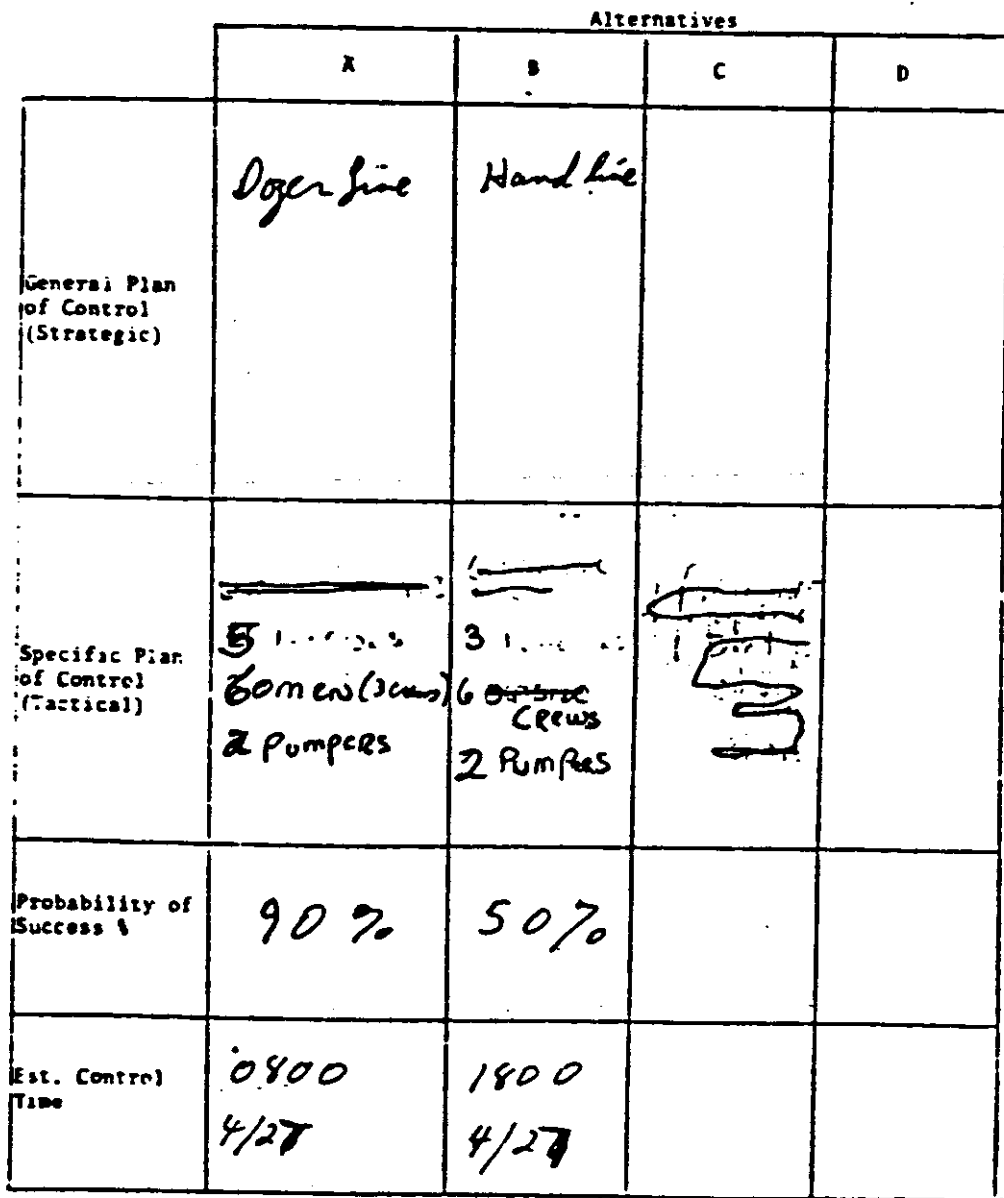 Alternatives
A B C D
General Plan
of Control
(Strategic)
Dozer line
Hand line
Specific Plan
of Control
(Tactical)
5
60 men (3 crews)
2 Pumpers
3
6
CREWS
2 Pumpers
Probability of
Success %
90 %
50 %
Est. Control
Time
0800
4/27
1800
4/27